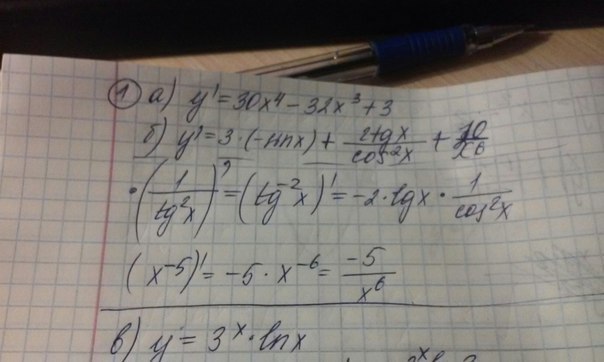 ① а) y' = 30x⁴ - 32x³ + 3
б) y' = 3·(-sinx) + 2tgx/cos²x + 10/x⁶
• (1/tg²x)' = (tg⁻²x)' = -2·tgx · 1/cos²x
(x⁻⁵)' = -5·x⁻⁶ = -5/x⁶
в) y = 3ˣ·lnx